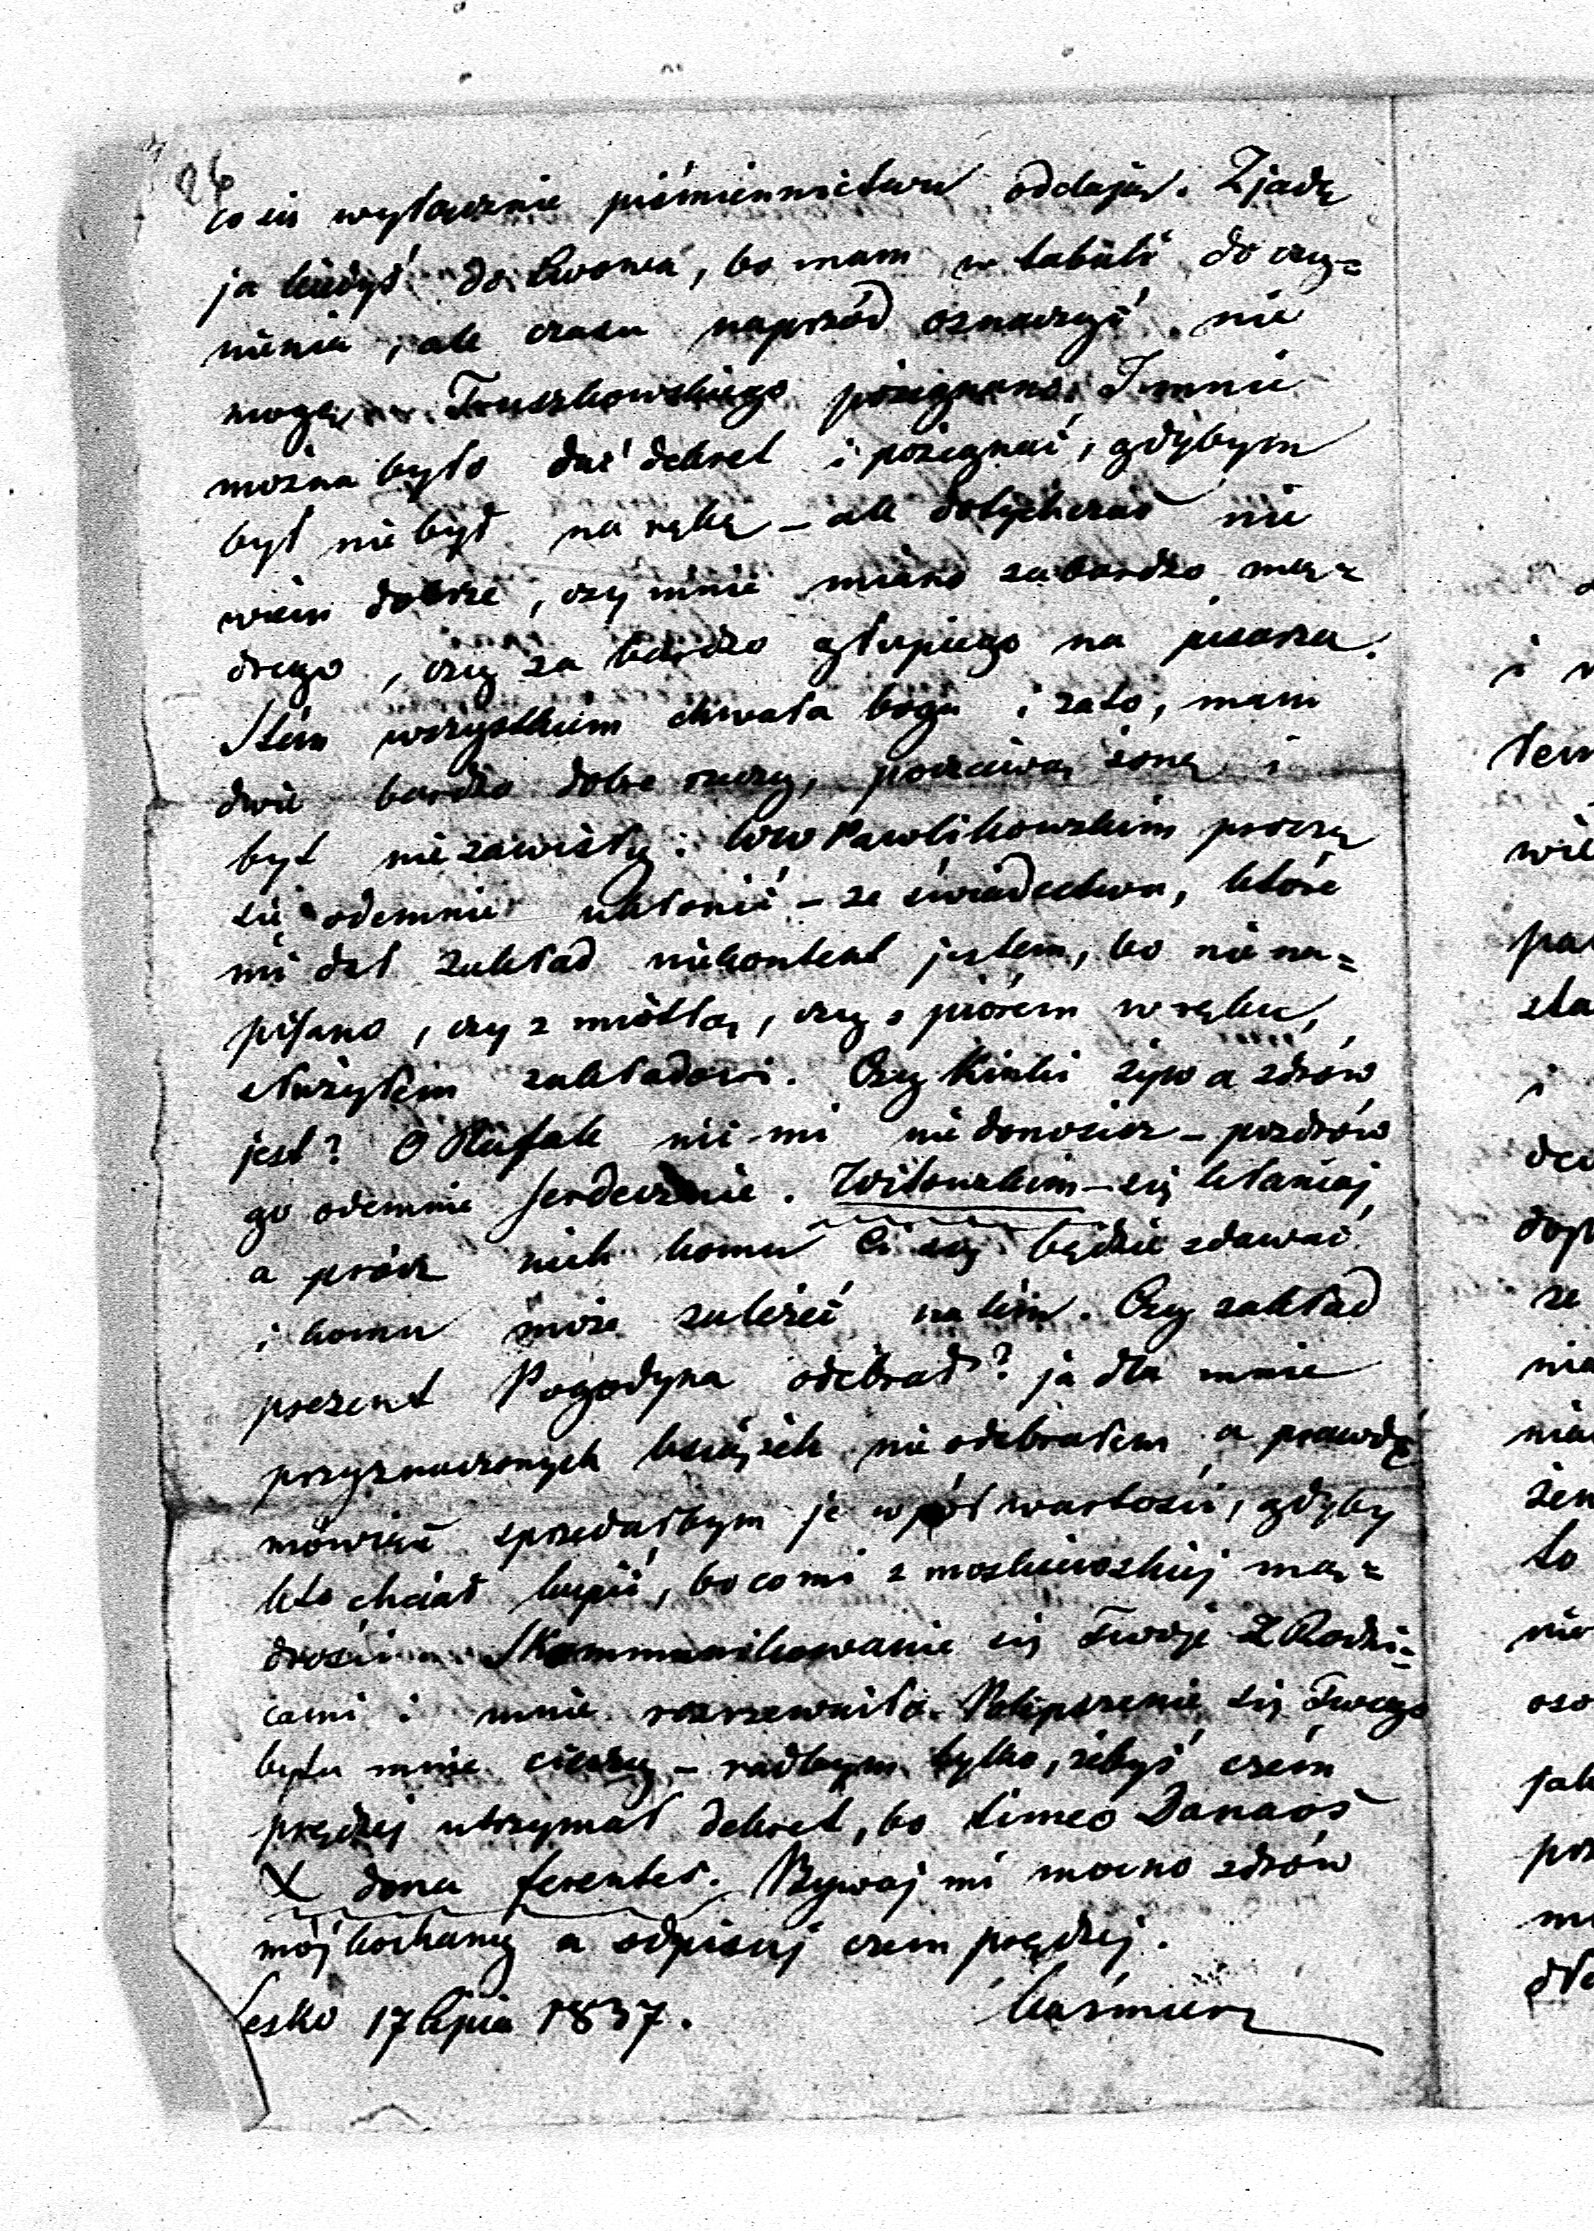 26
co się wyłącznie piśmiennictwu oddają. Zjadę
ja kiedyś do Lwowa, bo mam w tabuli do czy=
nienia, ale czasu naprzód oznaczyć nie
mogę. Truszkowskiego pożegnano. I mnie
można było dać dekret i pożegnać, gdybym
był nie był na rękę – ale dotychczas nie
wiem dobrze, czy mnie miano za bardzo mą=
drego, czy za bardzo głupiego na pisarza.
Stém wszystkiem chwała bogu i zato, mam
dwie bardzo dobre rzeczy, poczciwą żonę i
byt niezawisły. WW Pawlikowskim proszę
się odemnie ukłonić – ze świadectwa, które
mi dał zakład niekontent jestem, bo nie na=
pisano, czy z miotłą, czy z piórem w ręku,
służyłem zakładowi. Czy żyw a zdrów
jest? O Rafale nic mi nie donosisz – pozdrów
go odemnie serdecznie. Witowskim – się kłaniaj
a prócz nich komu Ci się będzie zdawać
i komu może zależeć na tém. Czy zakład
prezent Pogodyna odebrał? ja dla mnie
przyznaczonych książek nie odebrałem a prawdę
mówiąc sprzedałbym je w pół wartości, gdyby
kto chciał kupić, bo co mi z moskiewskiej mą=
drości. Skommunikowanie się Twoje z Rodzi=
cami i mnie rozrzewniło. Polepszenie się Twego
bytu mnie cieszy – radbym tylko, żebyś czém
prędzej utrzymał dekret, bo timeo Danaos
& dona ferentes. Bywaj mi mocno zdrów
mój kochany a odpisuj czem prędzej.
Lesko 17 lipca 1837. Kaźmierz
i
wie
ze
to